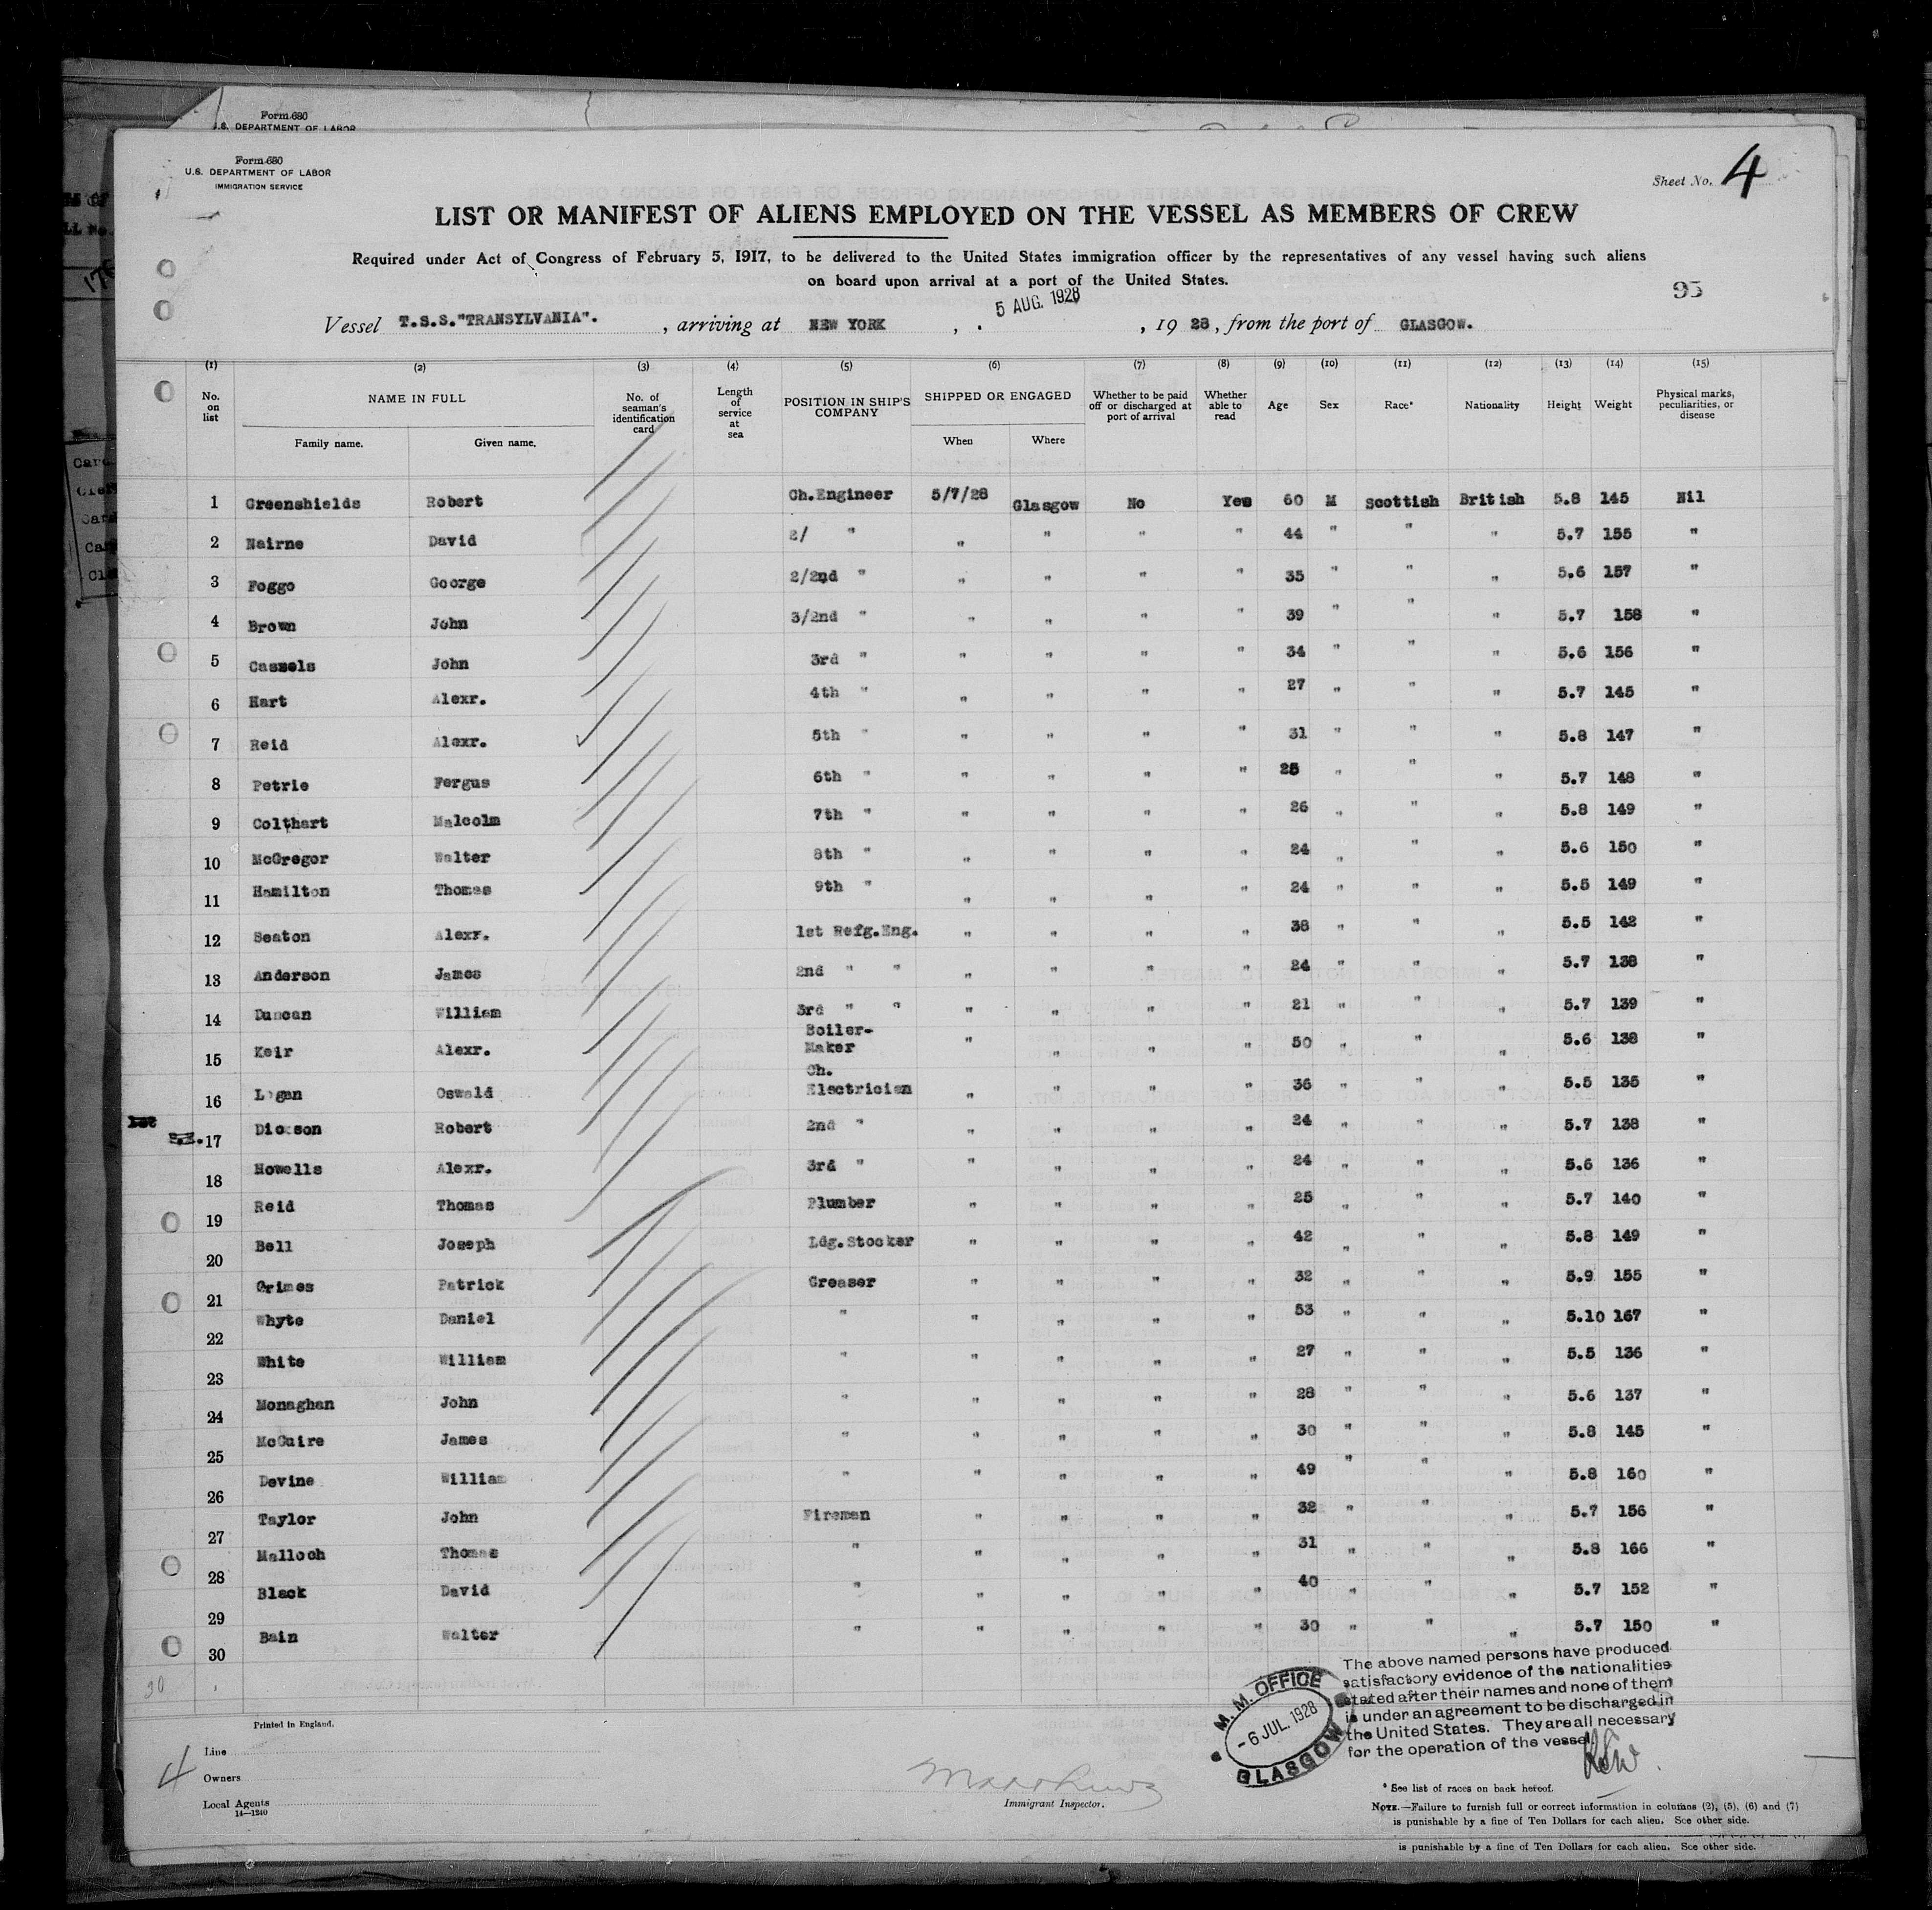 Form 680
U.S. DEPARTMENT OF LABOR
Form 680
U.S. DEPARTMENT OF LABOR
IMMIGRATION SERVICE
Sheet No. 4
LIST OR MANIFEST OF ALIENS EMPLOYED ON THE VESSEL AS MEMBERS OF CREW
Required under Act of Congress of February 5, 1917, to be delivered to the United States immigration officer by the representatives of any vessel having such aliens
on board upon arrival at a port of the United States.
95
5 AUG. 1928
Vessel T.S.S."TRANSYLVANIA". , arriving at NEW YORK , , 19 28 , from the port of GLASGOW.
(1) (2) (3) (4) (5) (6) (7) (8) (9) (10) (11) (12) (13) (14) (15)
No. on list NAME IN FULL Family name. Given name. No. of seaman's identification card Length of service at sea POSITION IN SHIP'S COMPANY SHIPPED OR ENGAGED When Where Whether to be paid off or discharged at port of arrival Whether able to read Age Sex Race* Nationality Height Weight Physical marks, peculiarities, or disease
1 Greenshields Robert Ch.Engineer 5/7/28 Glasgow No Yes 60 M Scottish British 5.8 145 Nil
2 Nairne David 2/ " " " " " 44 " " " 5.7 155 "
3 Foggo George 2/2nd " " " " " 35 " " " 5.6 157 "
4 Brown John 3/2nd " " " " " 39 " " " 5.7 158 "
5 Cassels John 3rd " " " " " 34 " " " 5.6 156 "
6 Hart Alexr. 4th " " " " " 27 " " " 5.7 145 "
7 Reid Alexr. 5th " " " " " 31 " " " 5.8 147 "
8 Petrie Fergus 6th " " " " " 25 " " " 5.7 148 "
9 Colthart Malcolm 7th " " " " " 26 " " " 5.8 149 "
10 McGregor Walter 8th " " " " " 24 " " " 5.6 150 "
11 Hamilton Thomas 9th " " " " " 24 " " " 5.5 149 "
12 Seaton Alexr. 1st Refg.Eng. " " " " 38 " " " 5.5 142 "
13 Anderson James 2nd " " " " " " 24 " " " 5.7 138 "
14 Duncan William 3rd " " " " " " 21 " " " 5.7 139 "
15 Keir Alexr. Boiler-Maker " " " " 50 " " " 5.6 138 "
16 Logan Oswald Ch. Electrician " " " " 36 " " " 5.5 135 "
17 Dickson Robert 2nd " " " " " 24 " " " 5.7 138 "
18 Howells Alexr. 3rd " " " " " 24 " " " 5.6 136 "
19 Reid Thomas Plumber " " " " 25 " " " 5.7 140 "
20 Bell Joseph Ldg.Stocker " " " " 42 " " " 5.8 149 "
21 Grimes Patrick Greaser " " " " 32 " " " 5.9 155 "
22 Whyte Daniel " " " " " 53 " " " 5.10 167 "
23 White William " " " " " 27 " " " 5.5 136 "
24 Monaghan John " " " " " 28 " " " 5.6 137 "
25 McGuire James " " " " " 30 " " " 5.8 145 "
26 Devine William " " " " " 49 " " " 5.8 160 "
27 Taylor John Fireman " " " " 32 " " " 5.7 156 "
28 Malloch Thomas " " " " " 31 " " " 5.8 166 "
29 Black David " " " " " 40 " " " 5.7 152 "
30 Bain Walter " " " " " 30 " " " 5.7 150 "
30
The above named persons have produced
satisfactory evidence of the nationalities
stated after their names and none of them
is under an agreement to be discharged in
the United States. They are all necessary
for the operation of the vessel.
M. M. OFFICE
- 6 JUL. 1928
GLASGOW
Printed in England.
4
Line
Owners
Local Agents
14—1240
Immigrant Inspector.
* See list of races on back hereof.
NOTE.—Failure to furnish full or correct information in columns (2), (5), (6) and (7)
is punishable by a fine of Ten Dollars for each alien. See other side.
is punishable by a fine of Ten Dollars for each alien. See other side.